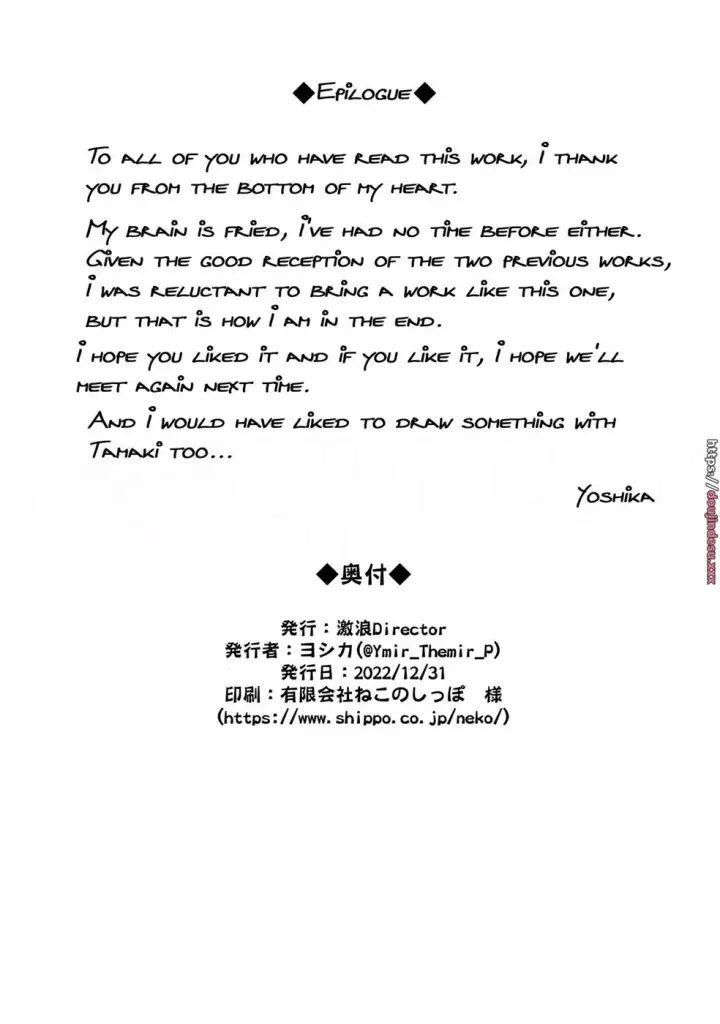 ◆Epilogue◆
To all of you who have read this work, i thank
you from the bottom of my heart.
My brain is fried, i've had no time before either.
Given the good reception of the two previous works,
i was reluctant to bring a work like this one,
but that is how i am in the end.
i hope you liked it and if you like it, i hope we'll
meet again next time.
And i would have liked to draw something with
Tamaki too...
Yoshika
◆奥付◆
発行：激浪Director
発行者：ヨシカ(@Ymir_Themir_P)
発行日：2022/12/31
印刷：有限会社ねこのしっぽ　様
(https://www.shippo.co.jp/neko/)
https://doujindesu.xxx